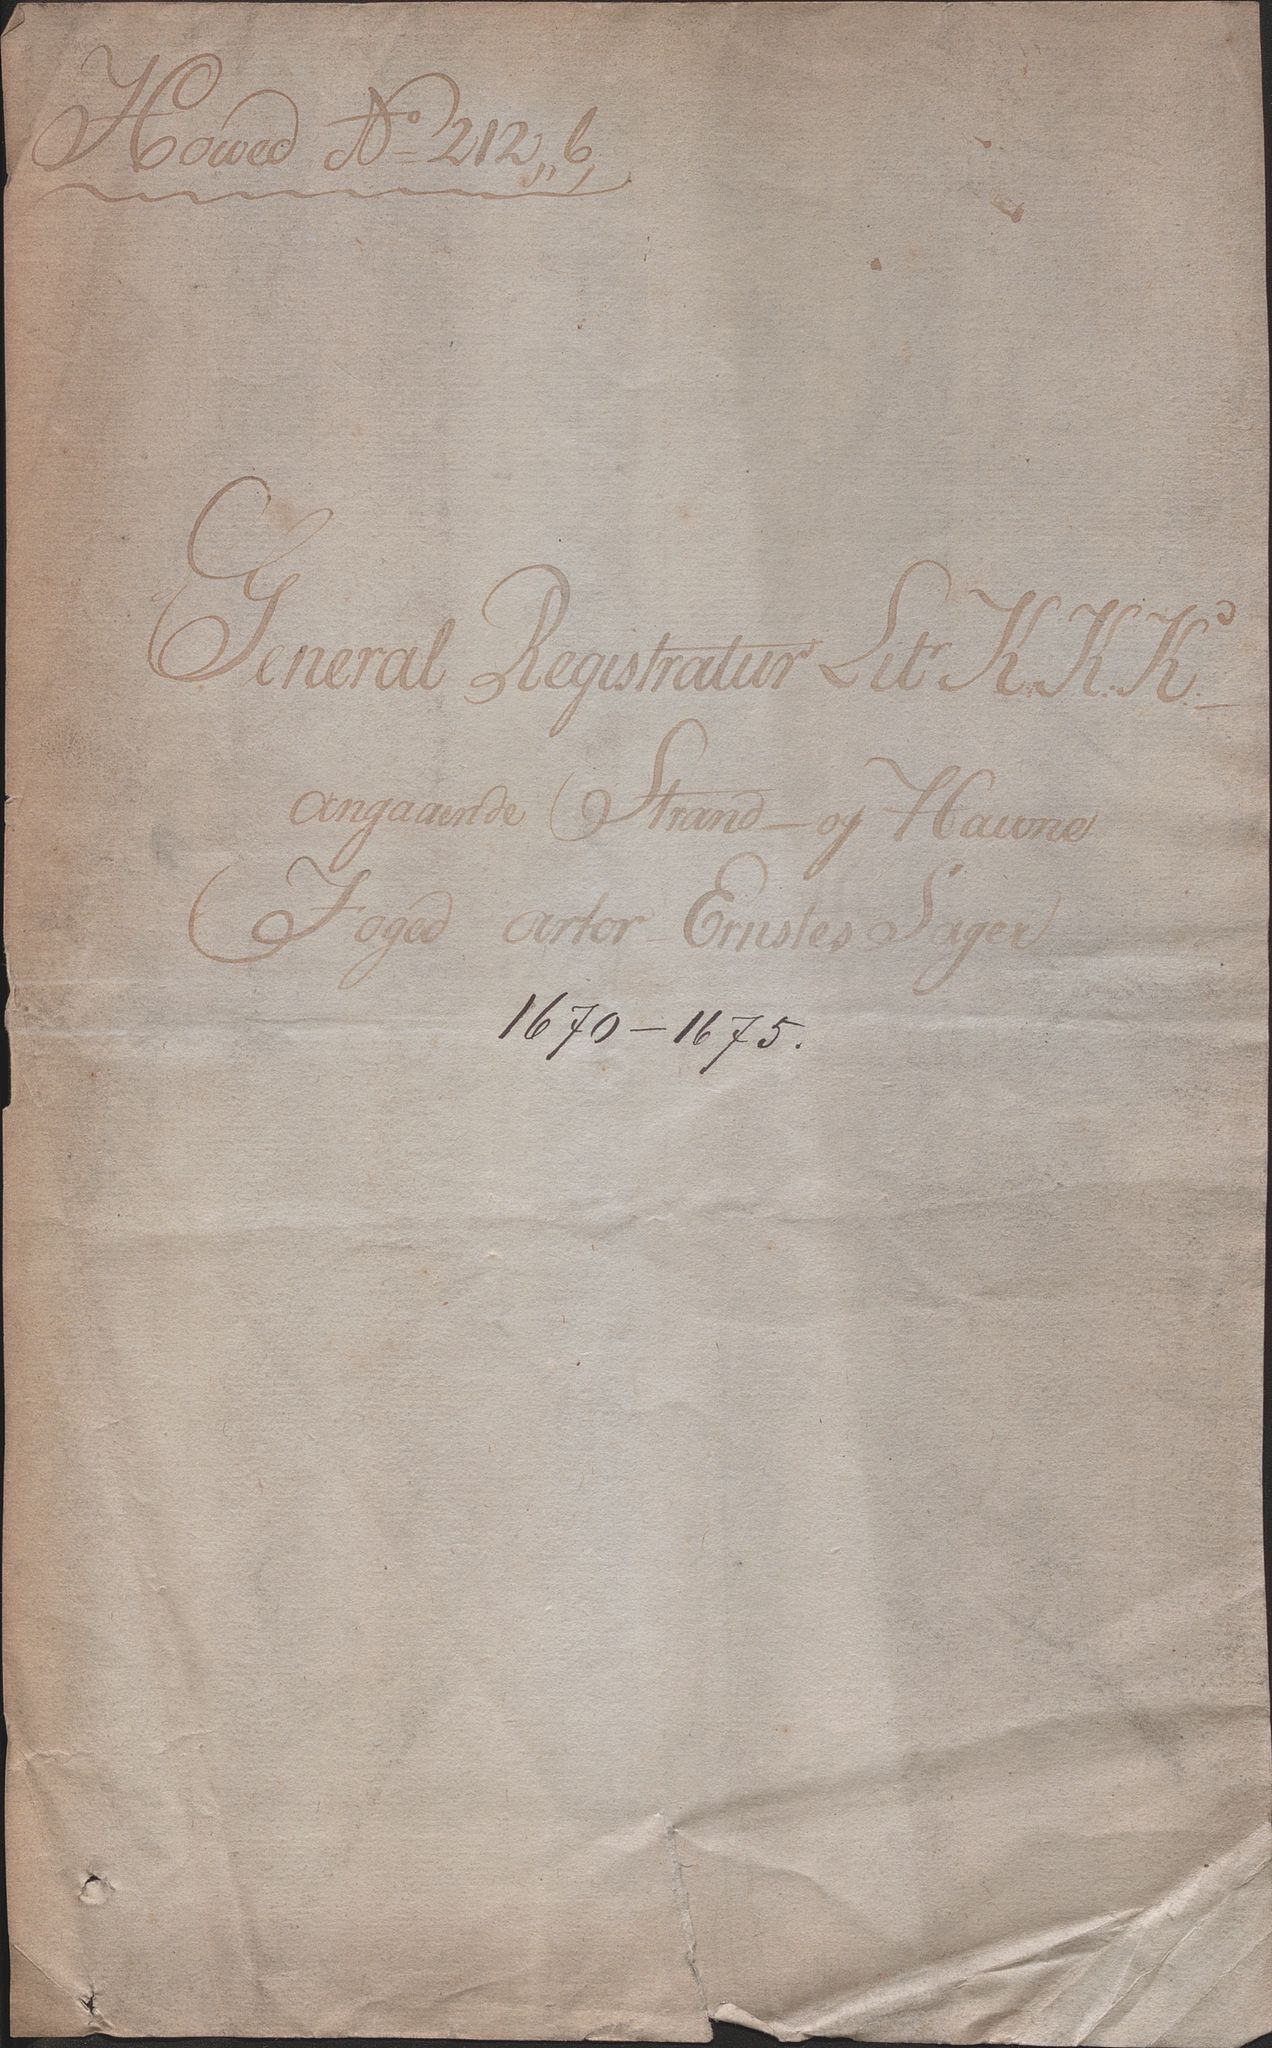 Howed No 212,, b,
General Registratur Litr K.K.K.
angaaende Strand- og Hawne
Foged artor Ernstes Sager
1670 - 1675.